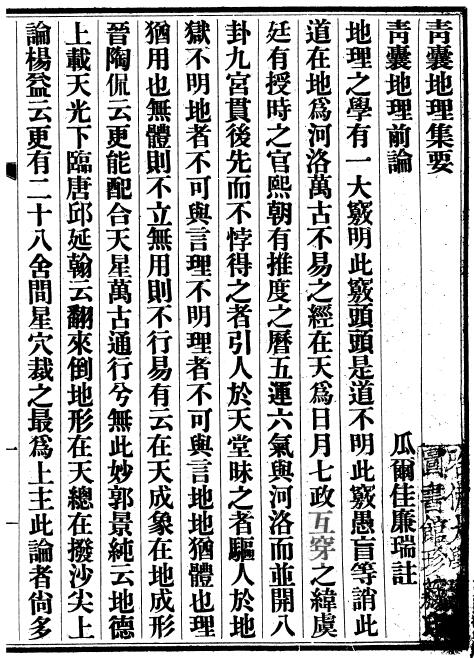 青囊地理集要
青囊地理前論
瓜爾佳廉瑞註
地理之學有一大竅明此竅頭頭是道不明此竅愚盲等誚此
道在地爲河洛萬古不易之經在天爲日月七政互穿之緯虞
廷有授時之官熙朝有推度之曆五運六氣與河洛而並開八
卦九宮貫後先而不悖得之者引人於天堂昧之者驅人於地
獄不明地者不可與言理不明理者不可與言地地猶體也理
猶用也無體則不立無用則不行易有云在天成象在地成形
晉陶侃云更能配合天星萬古通行兮無此妙郭景純云地德
上載天光下臨唐邱延翰云翻來倒地形在天總在撥沙尖上
論楊益云更有二十八舍間星穴裁之最爲上主此論者尙多
圖書館珍藏
一
一